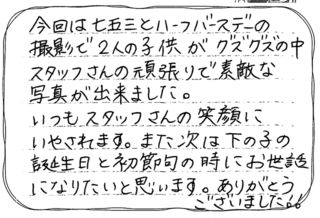 今回は七五三とハーフバースデーの
撮影で2人の子供がグズグズの中
スタッフさんの頑張りで素敵な
写真が出来ました。
いつもスタッフさんの笑顔に
いやされます。また次は下の子の
誕生日と初節句の時にお世話
になりたいと思います。ありがとう
ございました!!